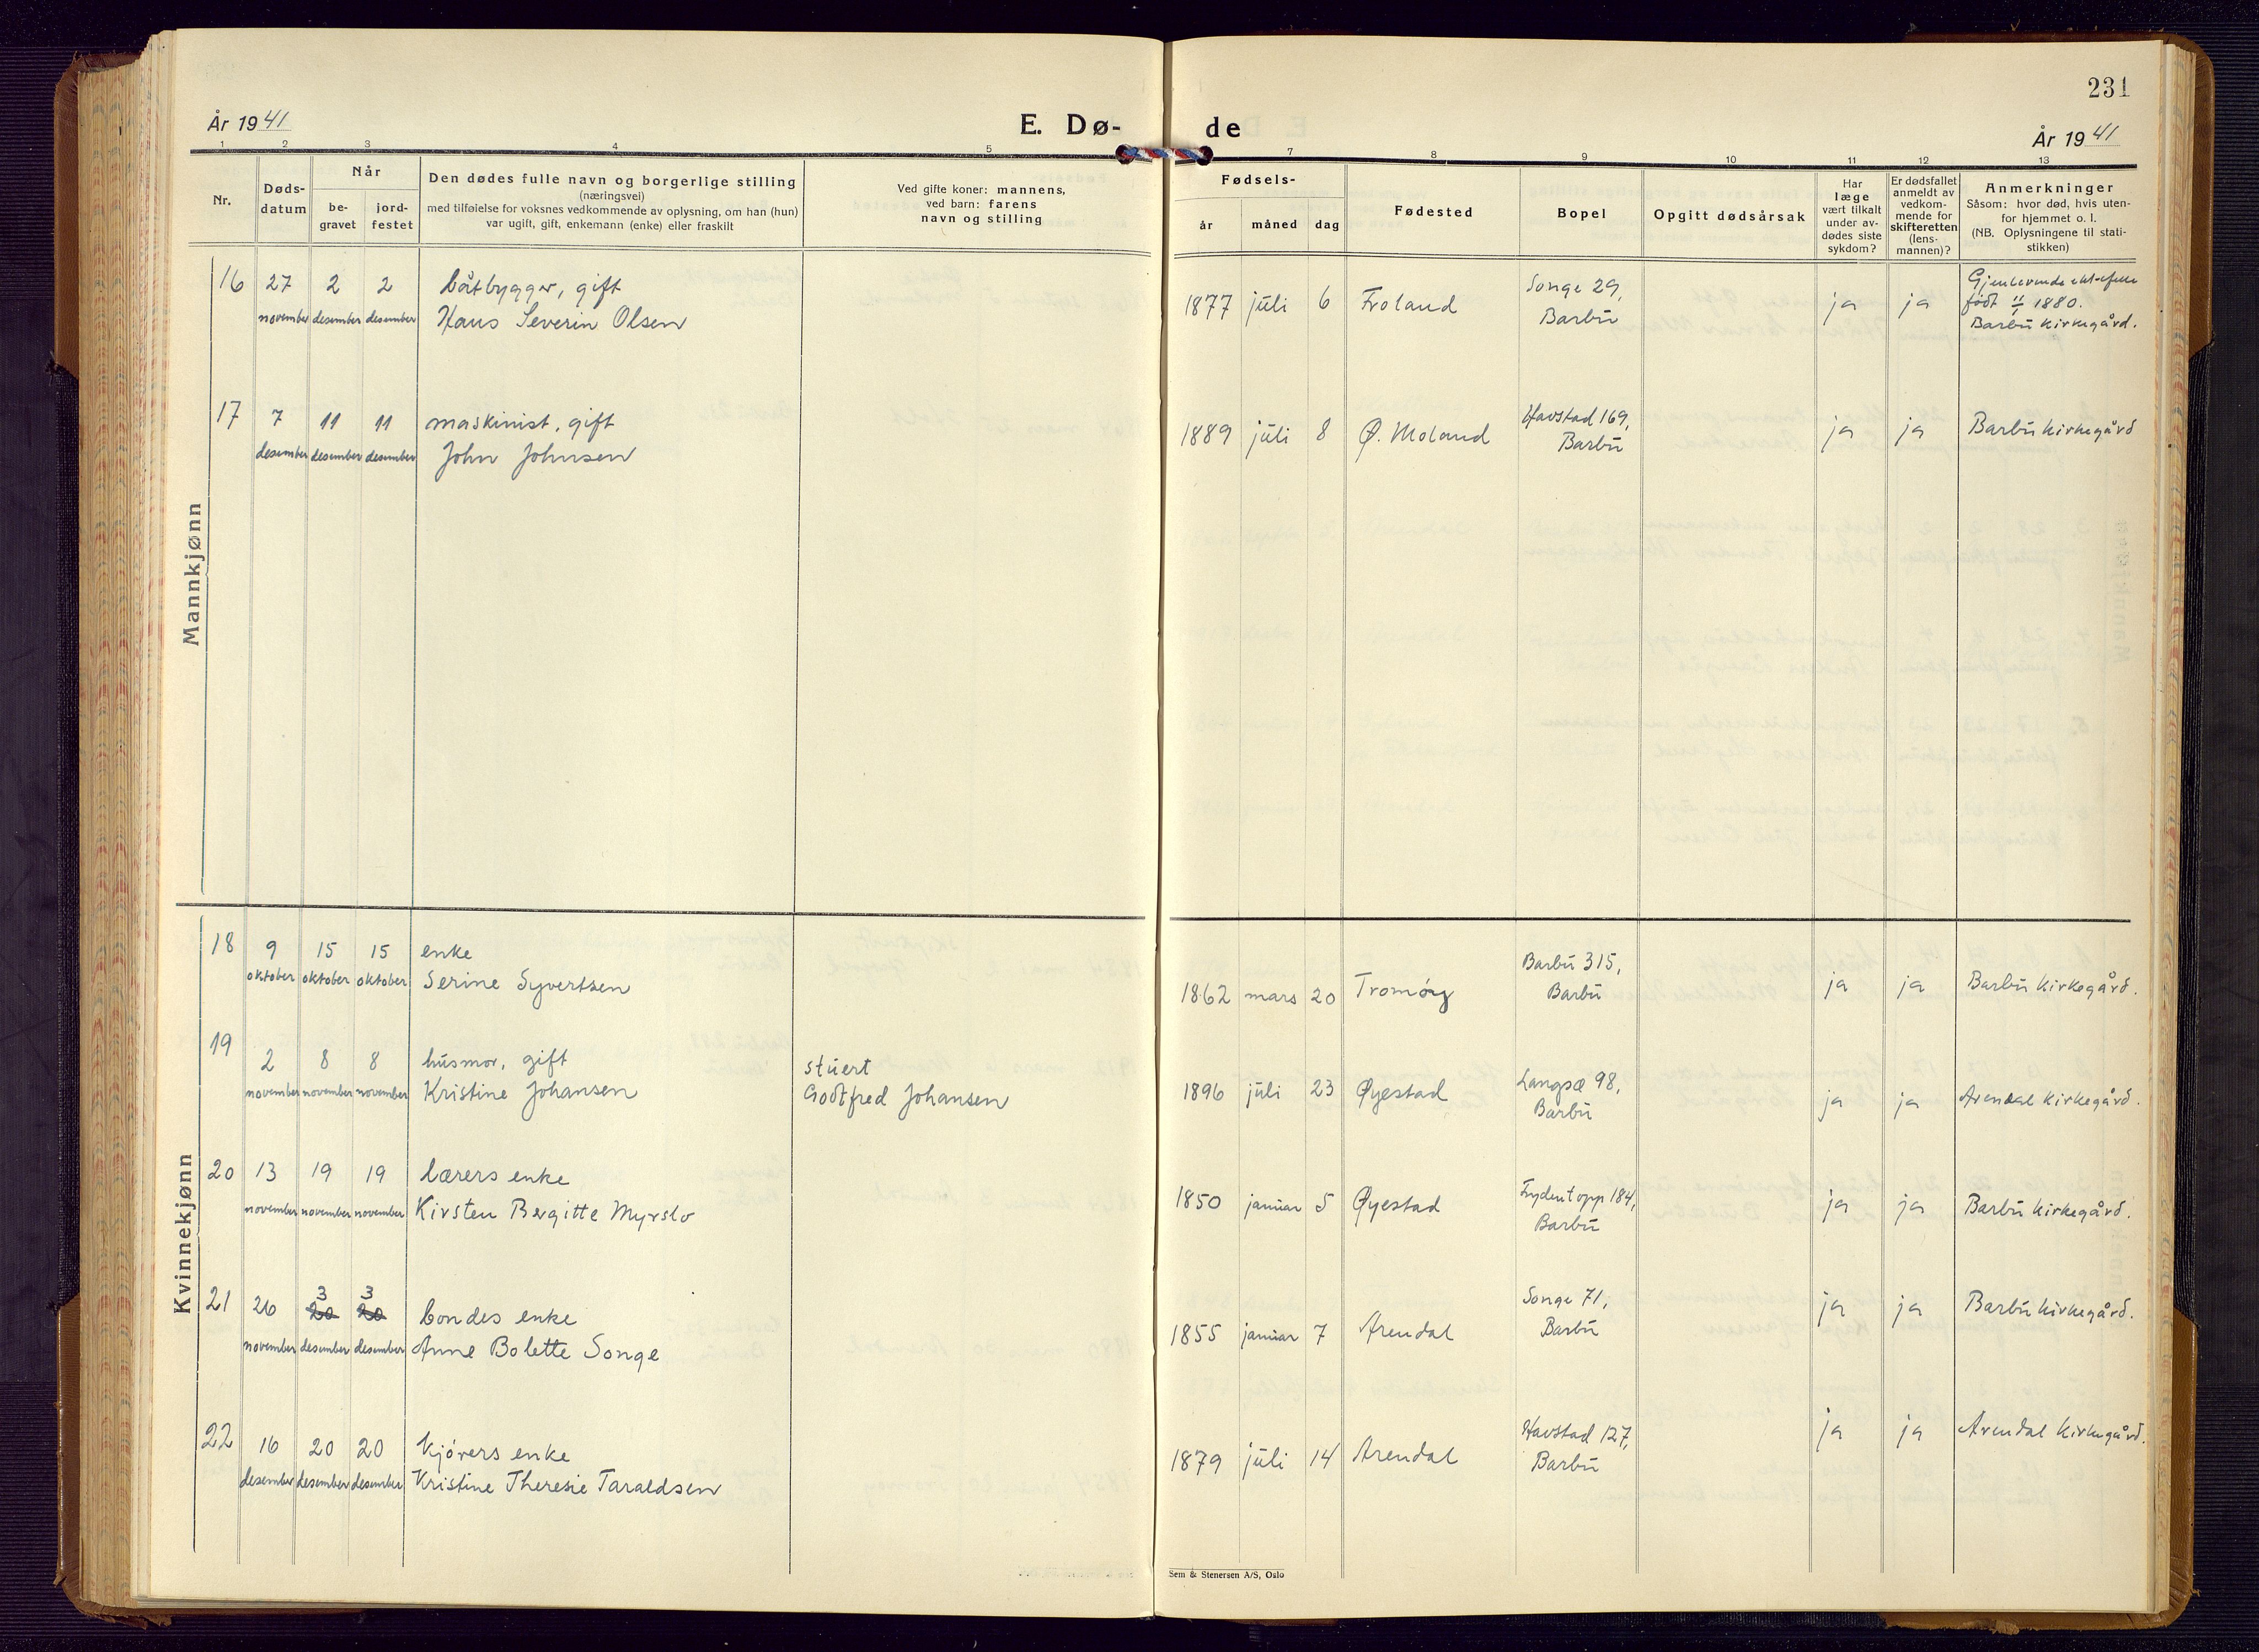 231
År 1941
E. Dø-
de
År 1941
1 2 3 4 5 7 8 9 10 11 12 13
Nr.
Døds-
datum
Når
be-
gravet
jord-
festet
Den dødes fulle navn og borgerlige stilling
(næringsvei)
med tilføielse for voksnes vedkommende av oplysning, om han (hun)
var ugift, gift, enkemann (enke) eller fraskilt
Ved gifte koner: mannens,
ved barn: farens
navn og stilling
Fødsels-
år måned dag
Fødested
Bopel
Opgitt dødsårsak
Har
læge
vært tilkalt
under av-
dødes siste
sykdom?
Er dødsfallet
anmeldt av
vedkom-
mende for
skifteretten
(lens-
mannen)?
Anmerkninger
Såsom: hvor død, hvis uten-
for hjemmet o. l.
(NB. Oplysningene til stati-
stikken)
Mannkjønn
16 27 2 2 båtbygger, gift
november desember desember Hans Severin Olsen
1877 juli 6 Froland
Songe 29,
Barbu
ja ja
Gjenlevende ektefelle
født 11/1 1880.
Barbu kirkegård.
17 7 11 11 maskinist, gift
desember desember desember John Johnsen
1889 juli 8 Ø. Moland
Havstad 169,
Barbu
ja ja Barbu kirkegård
Kvinnekjønn
18 9 15 15 enke
oktober oktober oktober Serine Syvertsen
1862 mars 20 Tromøy
Barbu 315,
Barbu
ja ja Barbu kirkegård.
19 2 8 8 husmor, gift stuert
november november november Kristine Johansen Godtfred Johansen
1896 juli 23 Øyestad
Langsæ 98,
Barbu
ja ja Arendal kirkegård.
20 13 19 19 lærers enke
november november november Kirsten Bergitte Myrslo
1850 januar 5 Øyestad
Frydentopp 184,
Barbu
ja ja Barbu kirkegård.
3 3
21 26 20 20 bondes enke
november desember desember Anne Bolette Songe
1855 januar 7 Arendal
Songe 71,
Barbu
ja ja Barbu kirkegård.
22 16 20 20 kjørers enke
desember desember desember Kristine Theresie Taraldsen
1879 juli 14 Arendal
Havstad 127,
Barbu
ja ja Arendal kirkegård.
Sem & Stenersen A/S, Oslo